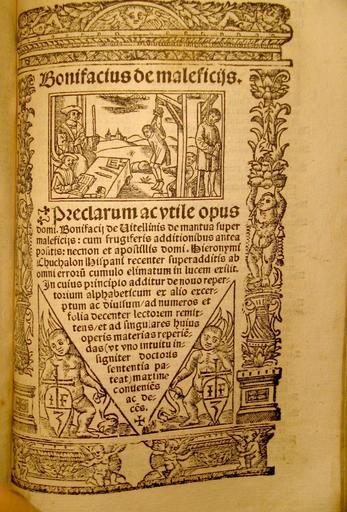 Bonifacius de maleficijs.
Preclarum ac vtile opus
domi. Bonifacij de Uitellinis de mantua super
maleficijs: cum frugiferis additionibus antea
positis: necnon et apostillis domi. Hieronymi
Chuchalon Hispani recenter superadditis ab
omni errorū cumulo elimatum in lucem exiit.
In cuius principio additur de nouo reper-
torium alphabeticum ex alio excer-
ptum ac diuisum/ad numeros et
folia decenter lectorem remit-
tens/et ad singulares huius
operis materias reperiē-
das (vt vno intuitu in-
signiter doctoris
sententia pa-
teat) maxime
conueniēs
ac de-
cēs.
I F I F